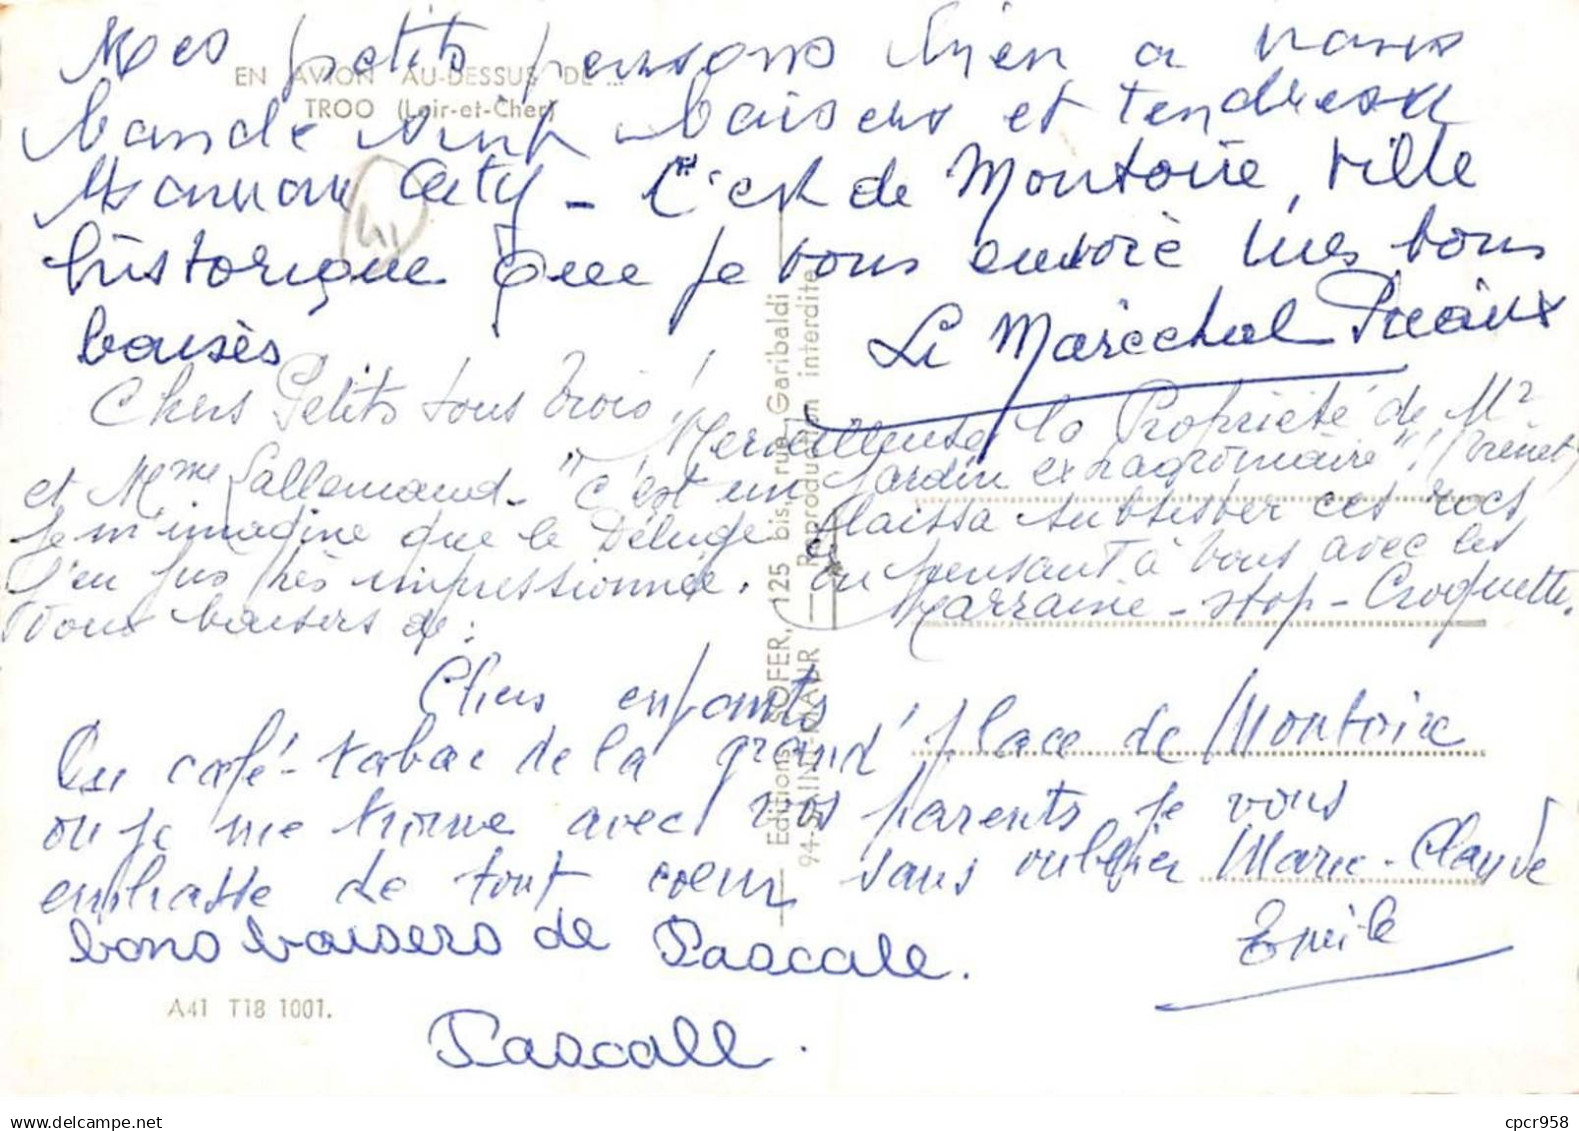 EN AVION AU-DESSUS DE ...
TROO (Loir-et-Cher)
Mes petits pensons bien a vous
bande baisers et tendresse
Maman Caty - C'est de Montoire, ville
historique que je vous envoie mes bons
baisès
Le Maréchal
Chers Petits tous trois !
Merveilleuse la Propriété de Mr
et Mme Lallemand - "c'est un jardin extragromaire" ! (Frénet)
Je m'imagine que le Déluge laissa subsister ces rocs,
J'en fus très impressionnée. En pensant à vous avec les
bons baisers de : Marraine - stop - Croquette.
Chers enfants
Du café-tabac de la grand' place de Montoire
où je me trouve avec vos parents je vous
embrasse de tout coeur sans oublier Marie-Claude
Emile
bons baisers de Pascale.
Pascale.
A41 T18 1001.
Editions SOFER, 125 bis, rue Garibaldi
94-SAINT-MAUR — Reproduction interdite
41
cpcr958